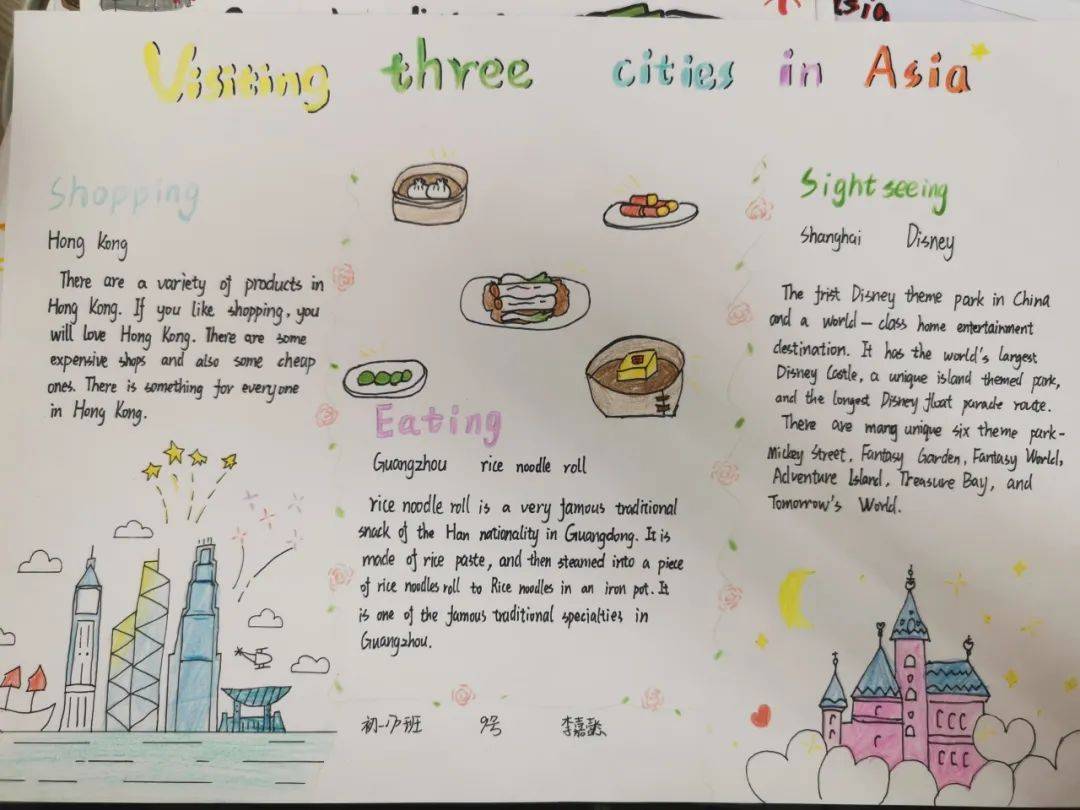 Visiting three cities in Asia
Shopping
Hong Kong
There are a variety of products in
Hong Kong. If you like shopping, you
will love Hong Kong. There are some
expensive shops and also some cheap
ones. There is something for everyone
in Hong Kong.
Eating
Guangzhou rice noodle roll
rice noodle roll is a very famous traditional
snack of the Han nationality in Guangdong. It is
made of rice paste, and then steamed into a piece
of rice noodles roll to Rice noodles in an iron pot. It
is one of the famous traditional specialties in
Guangzhou.
Sightseeing
Shanghai Disney
The frist Disney theme park in China
and a world-class home entertainment
destination. It has the world's largest
Disney Castle, a unique island themed park,
and the longest Disney float parade route.
There are mang unique six theme park-
Mickey Street, Fantasy Garden, Fantasy World,
Adventure Island, Treasure Bay, and
Tomorrow's World.
初一17班 9号